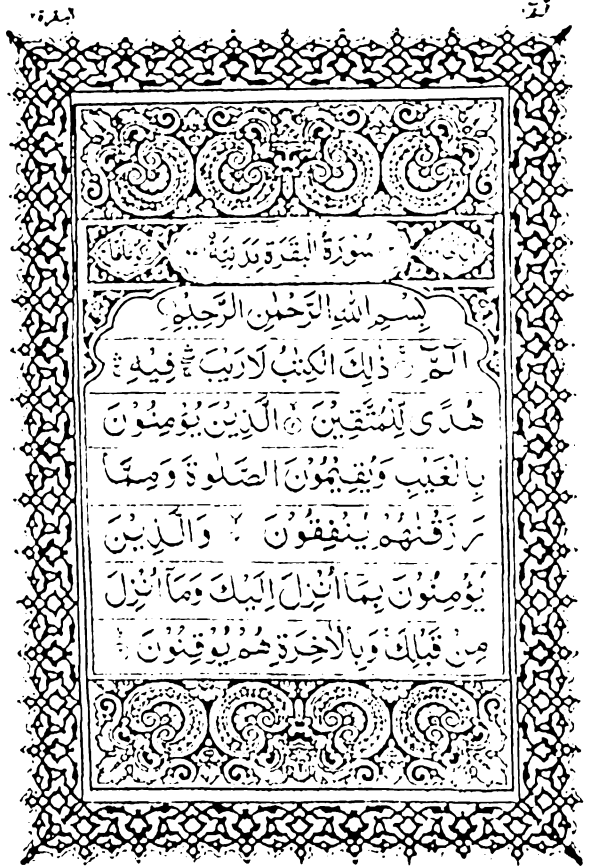 البقرة ٢
الٓمٓ
سُوْرَةُ الْبَقَرَةِ مَدَنِيَّةٌ
بِسْمِ اللهِ الرَّحْمٰنِ الرَّحِيْمِ
الٓمّٓ ذٰلِكَ الْكِتٰبُ لَا رَيْبَ فِيْهِ
هُدًى لِّلْمُتَّقِيْنَ الَّذِيْنَ يُؤْمِنُوْنَ
بِالْغَيْبِ وَيُقِيْمُوْنَ الصَّلٰوةَ وَمِمَّا
رَزَقْنٰهُمْ يُنْفِقُوْنَ وَالَّذِيْنَ
يُؤْمِنُوْنَ بِمَآ اُنْزِلَ اِلَيْكَ وَمَآ اُنْزِلَ
مِنْ قَبْلِكَ وَبِالْاٰخِرَةِ هُمْ يُوْقِنُوْنَ